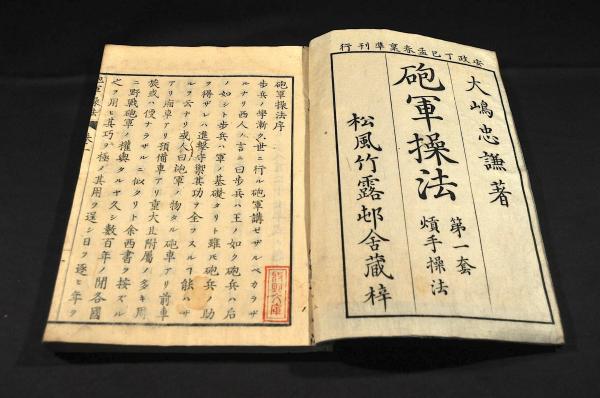 安政丁巳孟春稟準刊行
大嶋忠謙著
砲軍操法
第一套
熕手操法
松風竹露邨舍蔵梓
砲軍操法序
歩兵ノ學漸ク世ニ行ル砲軍講ゼザルベカラザ
ルナリ西人ノ言ニ曰歩兵ハ王ノ如ク砲兵ハ后
ノ如シト歩兵ハ軍ノ基礎タリト雖モ砲兵ノ助
ヲ得ザレハ進撃守禦其功ヲ全フスルヿ能ハザ
ルト云ナリ或人曰砲軍ノ物タル砲車アリ前車
アリ庖車アリ預備車アリ重大且附屬ノ多キ用
施或ハ便ナラザルニ似タリト余西書ヲ按ズル
ニ野戰砲軍ノ權輿タルヤ久シ數百年ノ間各國
之ヲ用ヒ其巧ヲ極メ其用ヲ逞シ日ヲ逐ヒ年ヲ
砲軍操法